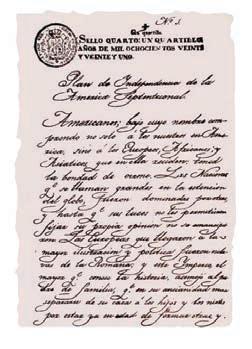 Nº 1.
Un quartillo
SELLO QUARTO: UN QUARTILLO
AÑOS DE MIL OCHOCIENTOS VEINTE
Y VEINTE Y UNO.
Plan de Independencia de la
America Septentrional.
Americanos; bajo cuyo nombre com-
prendo no solo á los nacidos en Amé-
rica, sino á los Europeos, Africanos, y
Asiaticos, que en ella residen: tened
la bondad de oirme. Las Naciones
qᵉ se llaman grandes en la extencion
del globo, fueron dominadas por otras,
y hasta qᵉ sus luces no les permitieron
fijar su propia opinion no se emancipa-
ron. Las Europeas que llegaron á la
mayor ilustracion y politica fueron escla-
vas de la Romana; este Imperio el
mayor qᵉ conoce la historia, asemejó al pa-
dre de familias, qᵉ en su ancianidad mira
separarse de su casa á los hijos y los nietos
por estar ya en edad de formar otras y